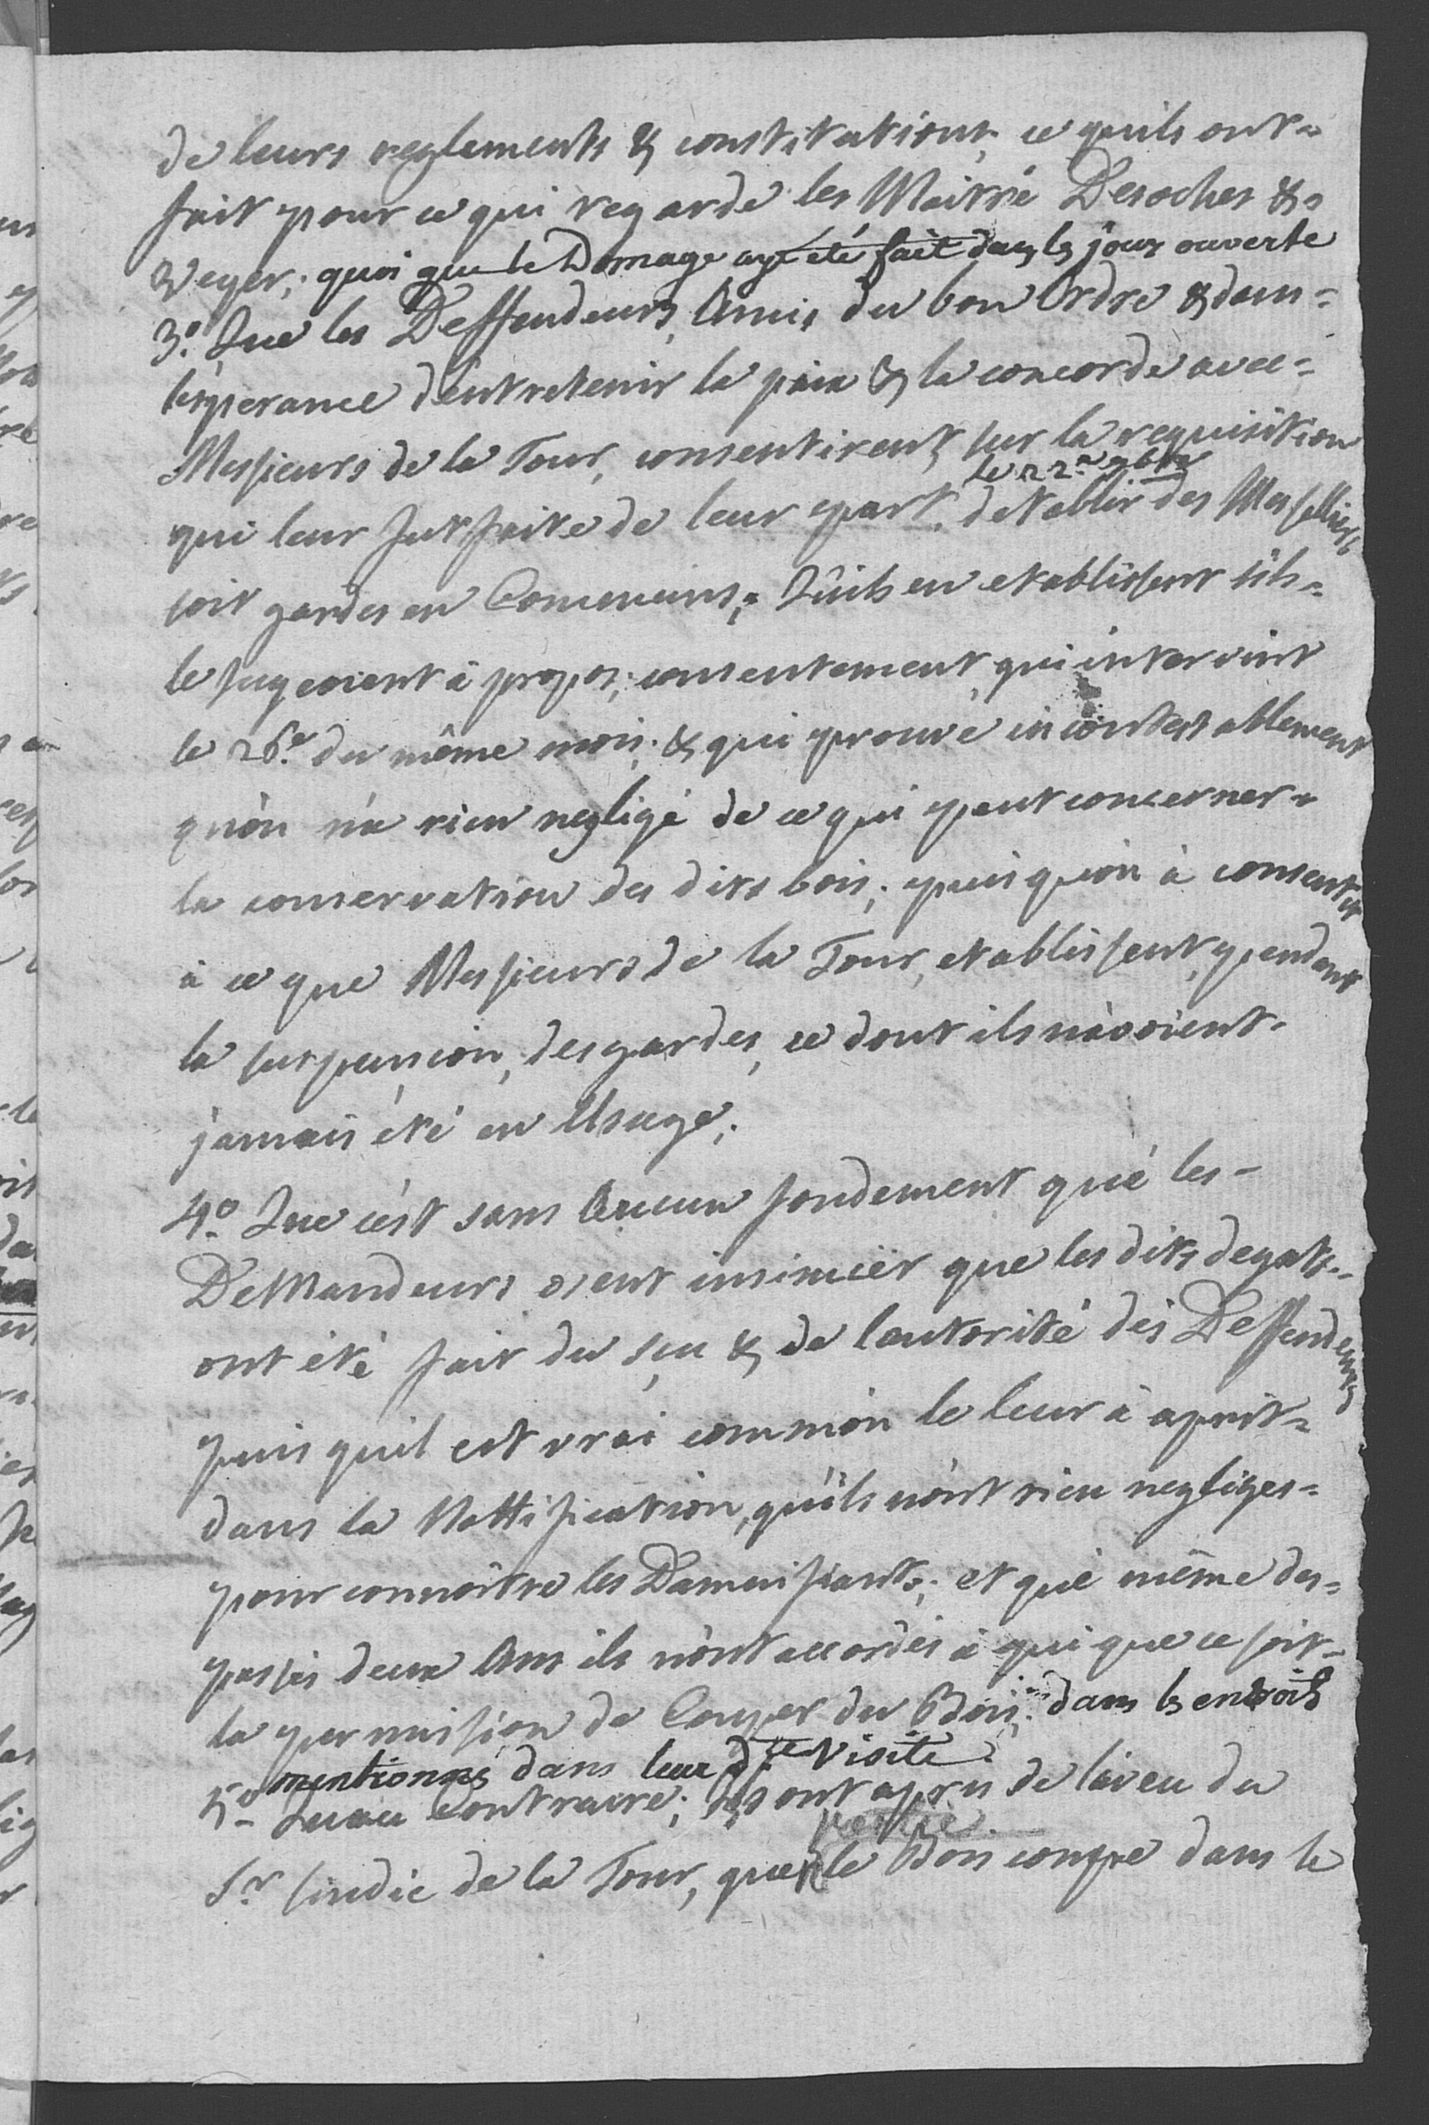 de leurs reglements & constitutions, ce quils ont=
fait pour ce qui regarde les Maitre Desoches &
Veger; quoi que le Domage aye été fait dans les jours ouverte
3.° Que les Deffendeurs, Amis du bon Ordre & dans=
lésperance déntretenir la paix & la concorde avec=
Messieurs de la Tour, consentirent, sur la requisition
qui leur fut faite de leur part, le 22.e 9bre détablir des Messelliers
soit gardes en Communs; Qu'ils en etablissent s'ils=
le jugeoient à propos; consentement, qui intervint
le 26.e du même mois; & qui prouve incontestablement
qu'on n'a rien negligé de ce qui peut concerner=
la conservation des dits bois; puis qu'on à consentis
à ce que Messieurs de la Tour, etablissent, pendant
la suspension, des gardes, ce dont ils n'avoient=
jamais été en Usage.
4.° Que c'est sans Aucun fondement que les=
DeMandeurs osent insinuër que les dits degats=
ont été fait du sçu & de l'autorité des Deffendeurs
puis quil est vrai comm'on le leur à aprit=
dans la Nottification, qu'ils n'ont rien negliges=
pour connoitre les Damnifiants; et que même des=
passés deux Ans ils n'ont accordés à qui que ce soit=
la permission de Couper du Bois; dans les endroits
mentionnés dans leur d.te Visite.
5.° Qu'au Contraire; Ils ont apris de l'aveu du
S.r sindic de la Tour, que partie le Bois coupe dans le